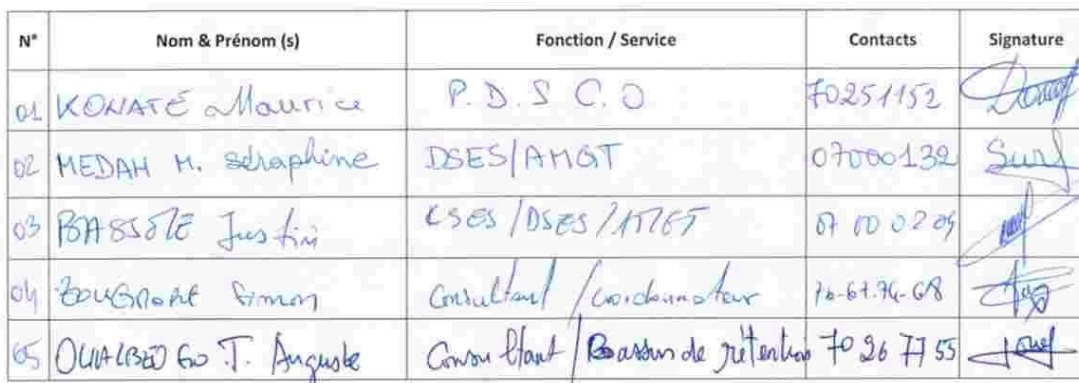 N° Nom & Prénom (s) Fonction / Service Contacts Signature
01 KONATÉ Maurice P.D.S.C.O 70251152
02 MEDAH M. Séraphine DSES/AMGT 07000132
03 BASSOLE Justin DSES/ 07 00 02 09
04 Simon Consultant / Coordonnateur 76-61.74-68
05 T. Auguste Consultant / Bassin de rétention 70 26 77 55